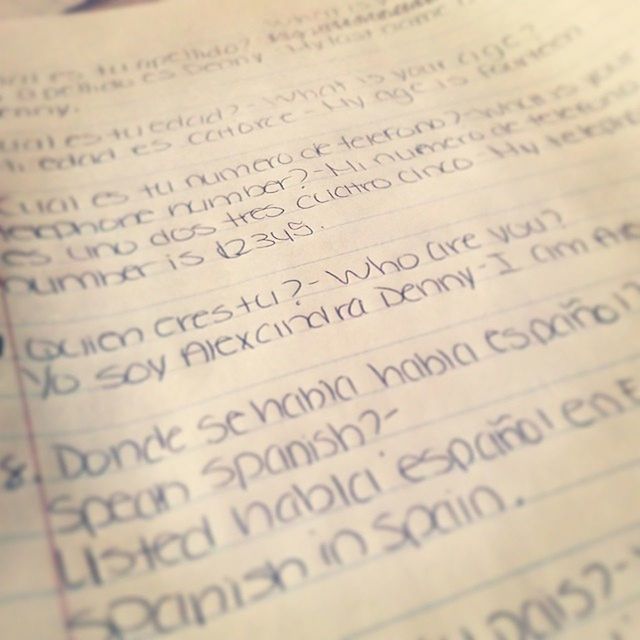 What is
es tu apellido? My last name
apellido es Denny
Denny.
cual es tu edad? - What is your age?
Mi edad es catorce - My age is fourteen
Cual es tu numero de telefono? - What is your
telephone number? - Mi numero de telefono
es uno dos tres cuatro cinco - My telephone
number is 12345.
Quien eres tu? - Who are you?
Yo soy Alexandra Denny - I am
8. Donde se habla habla español?
spean spanish? -
Usted habla español en
spanish in spain.
pais? -